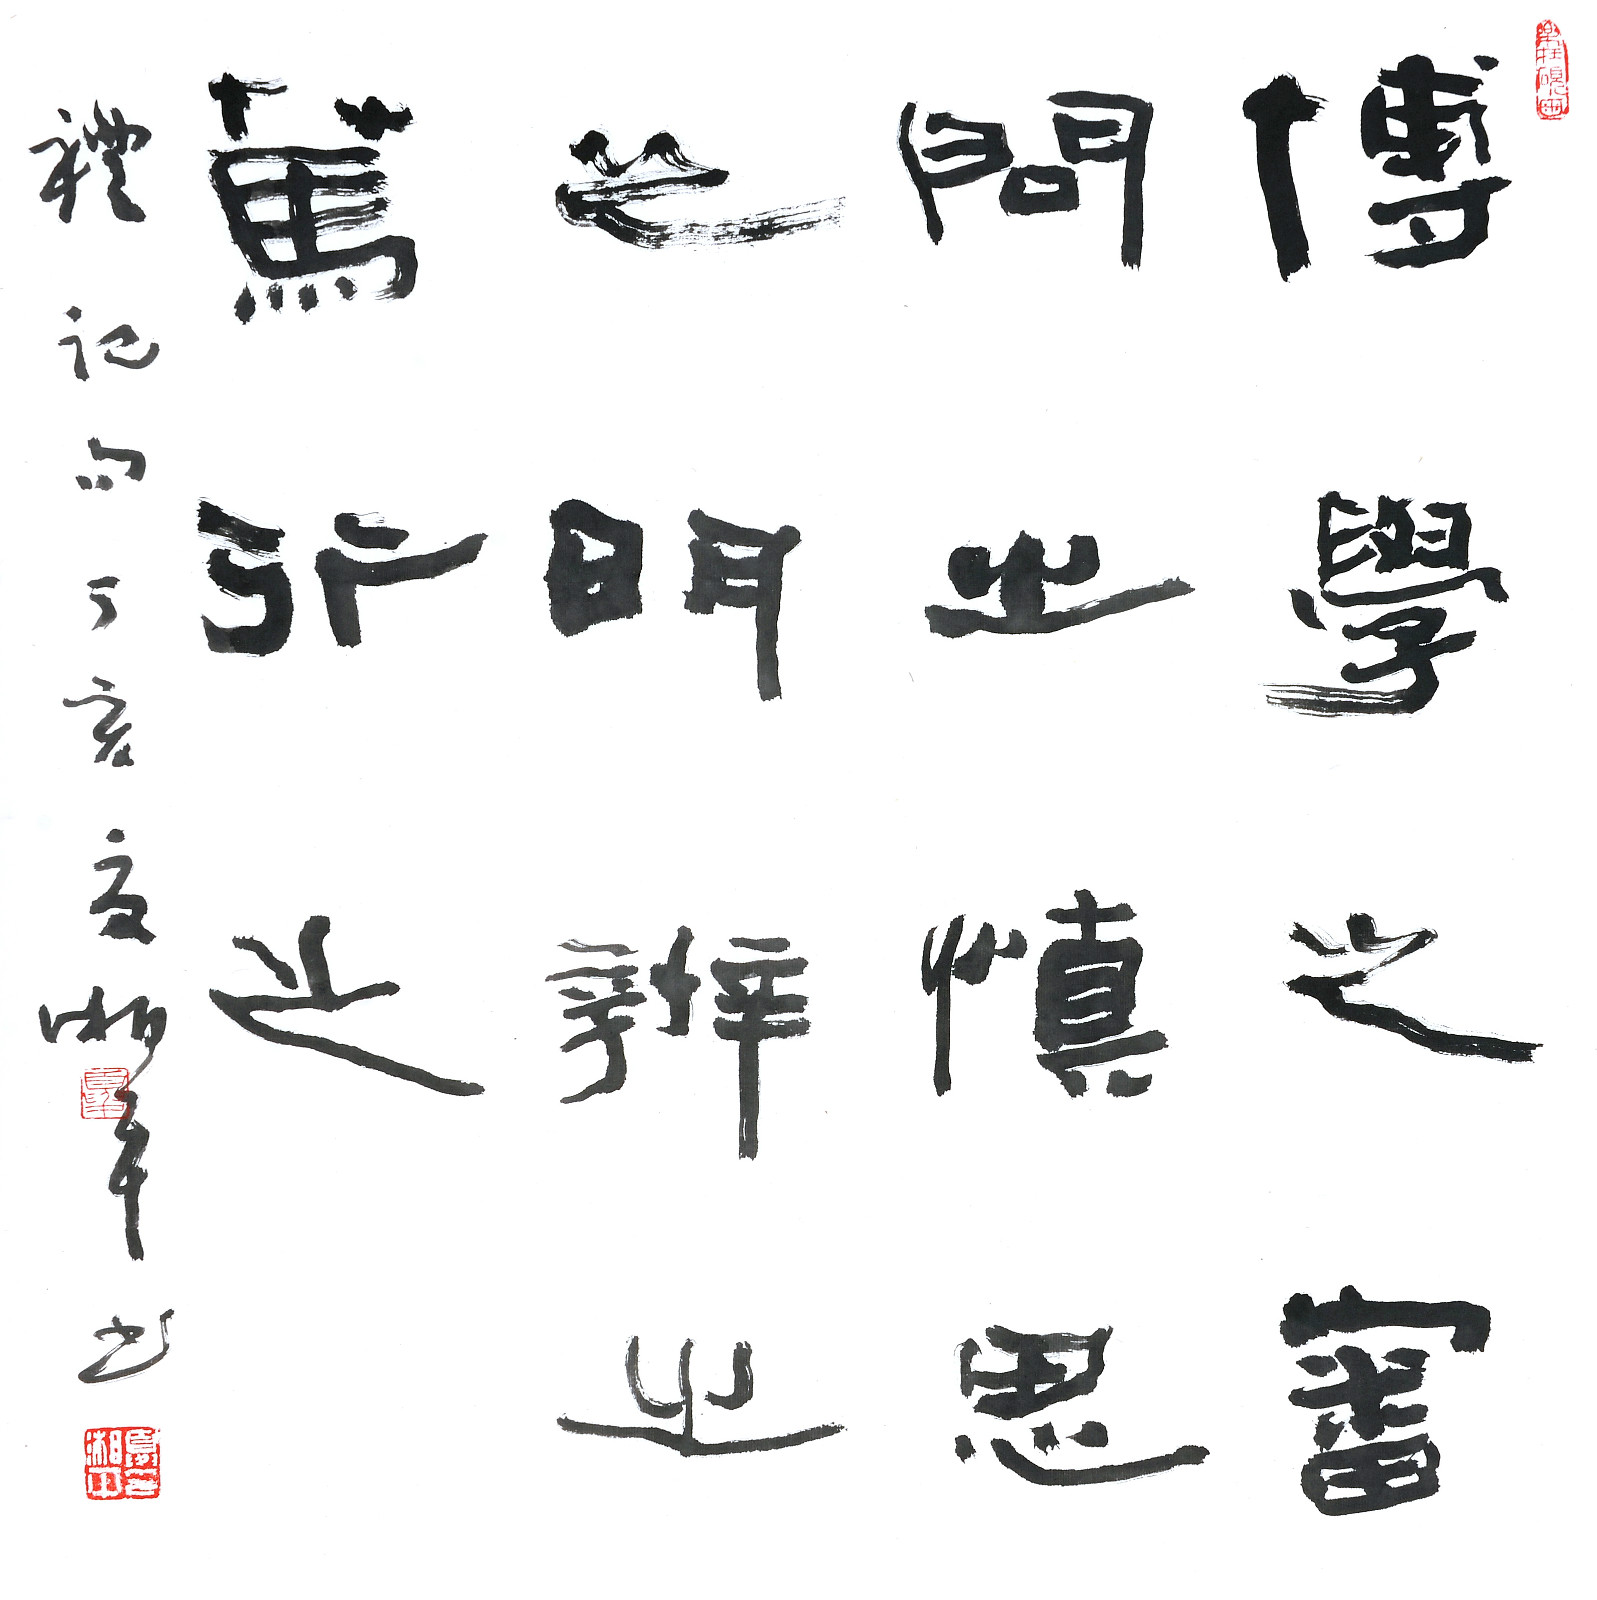 博學之審
問之慎思
之明辨之
篤行之
禮記句丁亥夏湘平书